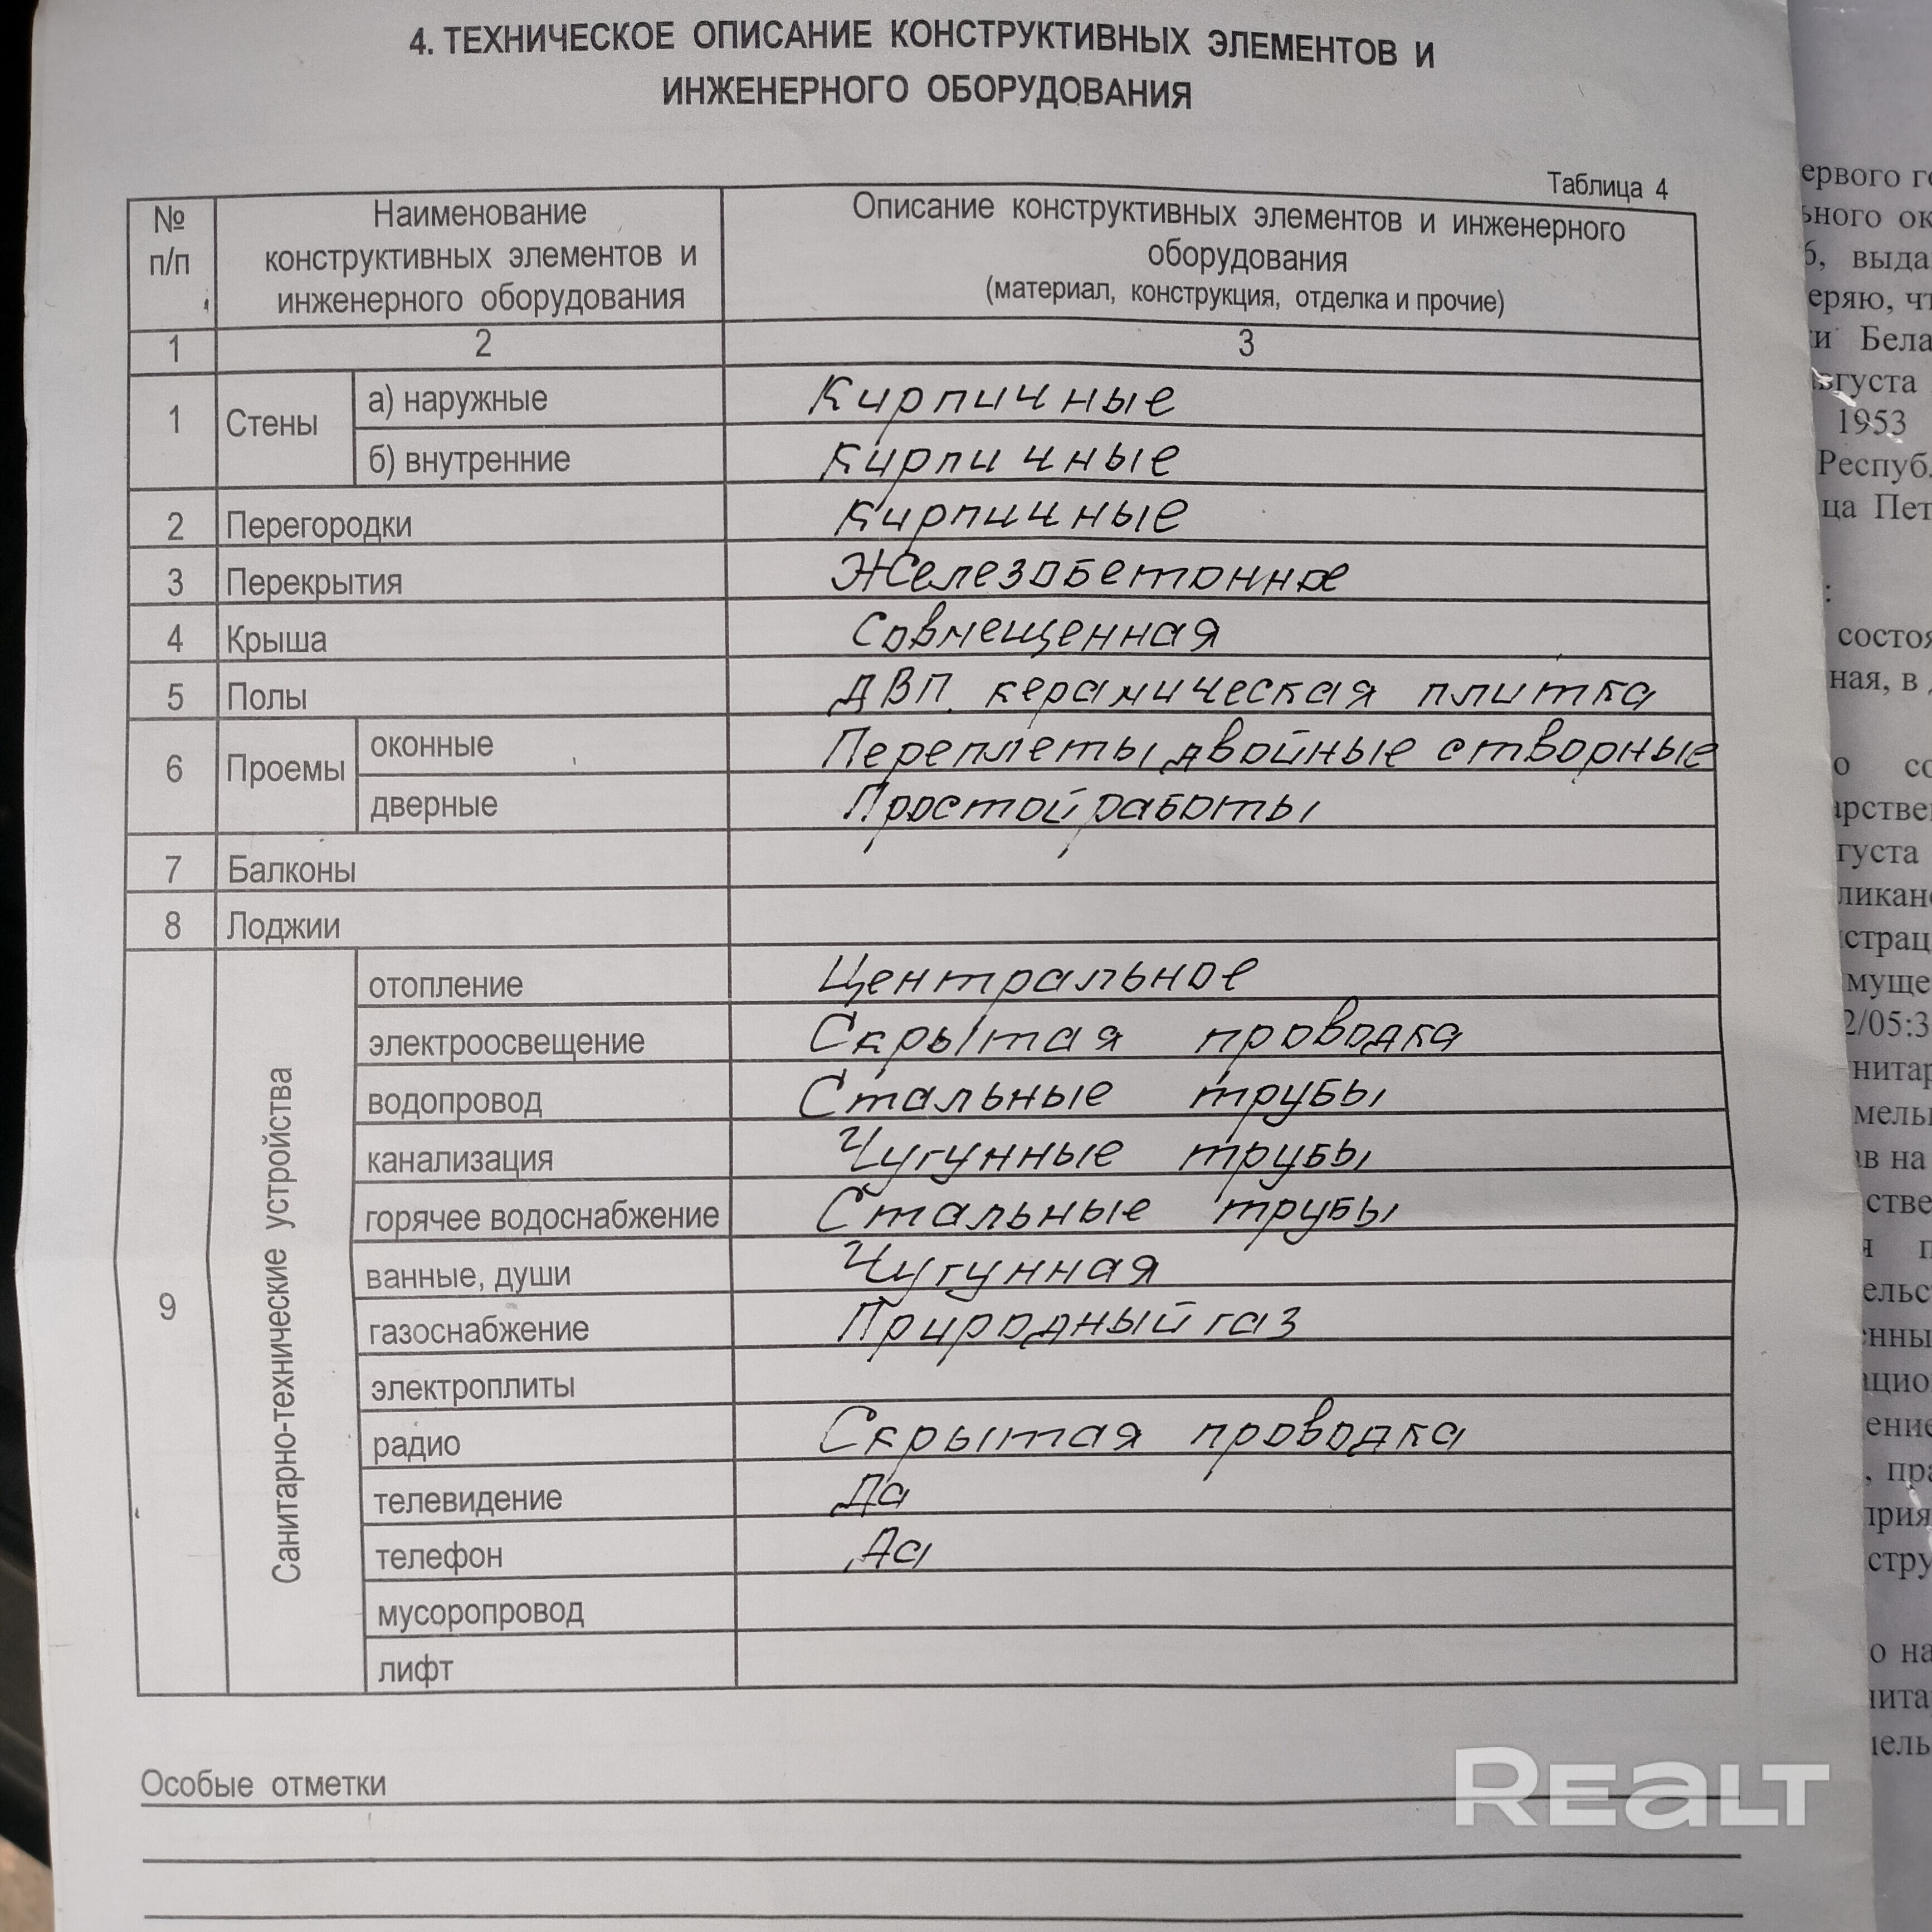 4. ТЕХНИЧЕСКОЕ ОПИСАНИЕ КОНСТРУКТИВНЫХ ЭЛЕМЕНТОВ И
ИНЖЕНЕРНОГО ОБОРУДОВАНИЯ
Таблица 4
№ п/п
Наименование
конструктивных элементов и
инженерного оборудования
Описание конструктивных элементов и инженерного
оборудования
(материал, конструкция, отделка и прочие)
1 2 3
1 Стены а) наружные Кирпичные
б) внутренние Кирпичные
2 Перегородки Кирпичные
3 Перекрытия Железобетонное
4 Крыша Совмещенная
5 Полы ДВП. керамическая плитка
6 Проемы оконные Переплеты двойные створные
дверные Простой работы
7 Балконы
8 Лоджии
9 Санитарно-технические устройства
отопление Центральное
электроосвещение Скрытая проводка
водопровод Стальные трубы
канализация Чугунные трубы
горячее водоснабжение Стальные трубы
ванные, души Чугунная
газоснабжение Природный газ
электроплиты
радио Скрытая проводка
телевидение Да
телефон Да
мусоропровод
лифт
Особые отметки
REALT
1953